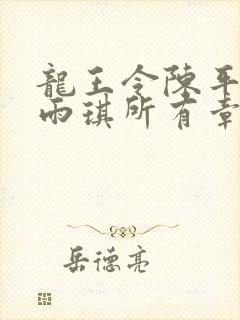 龍王令陳平
雨琪所有章
岳德亮